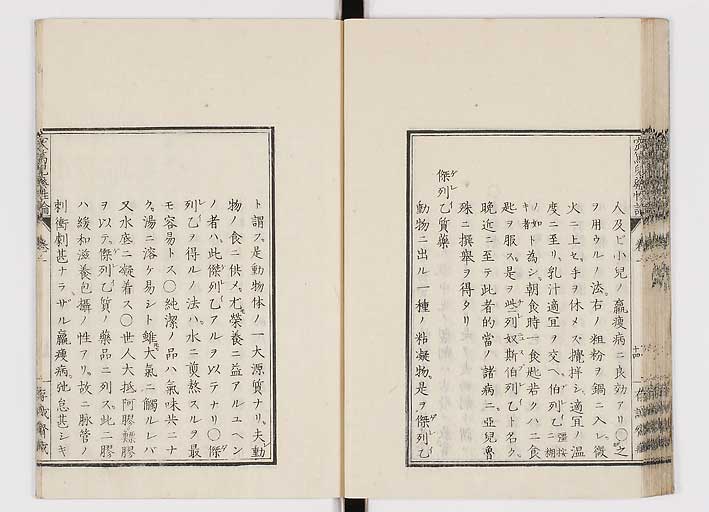 人及ビ小兒ノ羸瘦病ニ良効アリ〇之
ヲ用ウルノ法右ノ粗粉ヲ鍋ニ入レ微
火ニ上セ手ヲ休メズ攪拌シ適宜ノ温
度ニ至リ乳汁適宜ヲ交ヘ伯列乙
ノ如ト為シ朝食時一食匙若クハ二食
匙ヲ服ス是ヲ些列奴斯伯列乙ト名ク
晩近ニ至テ此者的當ノ諸病ニ亞兒魯
殊ニ撰擧ヲ得タリ
傑列乙質藥
動物ニ出ル一種ノ粘凝物是ヲ傑列乙
ト謂ス是動物体ノ一大源質ナリ夫動
物ノ食ニ供メ尤榮養ニ益アルユヘン
ノ者ハ此傑列乙アルヲ以テナリ〇傑
列乙ヲ得ルノ法ハ水ニ煎熬スルヲ最
モ容易トス〇純潔ノ品ハ氣味共ニナ
ク湯ニ溶ケ易シト雖大氣ニ觸ルレバ
又水底ニ凝着ス〇世人大抵阿膠鰾膠
ヲ以テ傑列乙質ノ藥品ニ列ス此二膠
ハ緩和滋養包攝ノ性アリ故ニ脉管ノ
刺衝劇甚ナラザル羸瘦病弛怠甚シキ